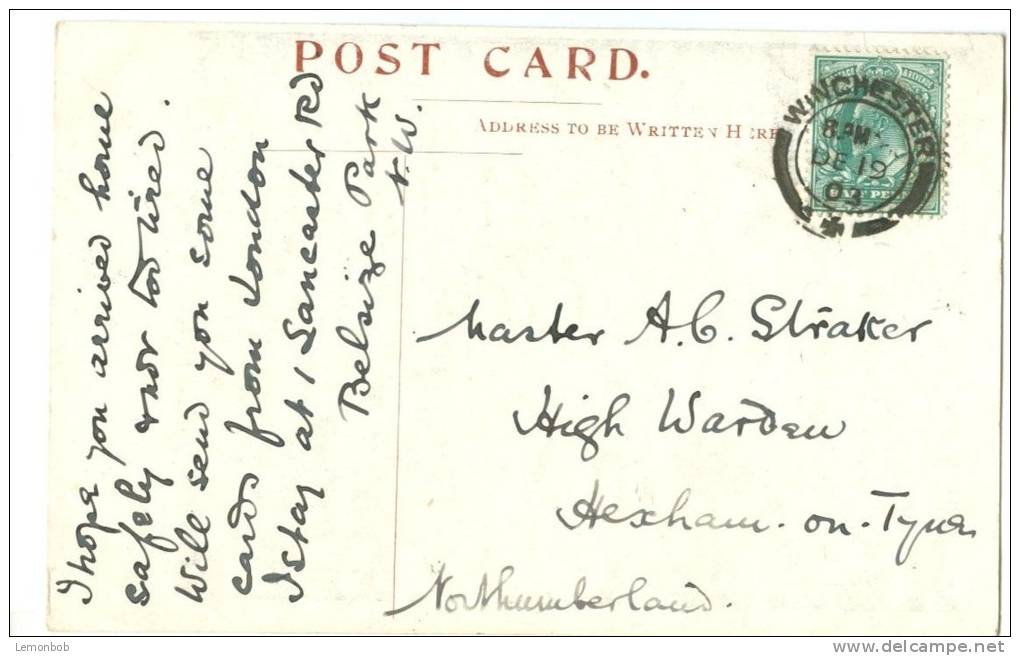 POST CARD.
ADDRESS TO BE WRITTEN HERE
WINCHESTER
8 AM
DE 19
03
I hope you arrived home
safely & not too tired.
Will send you some
cards from London
I stay at 1 Lancaster Rd
Belsize Park
N.W.
Master A. C. Straker
High Warden
Hexham-on-Tyne
Northumberland.
Lemonbob
www.delcampe.net